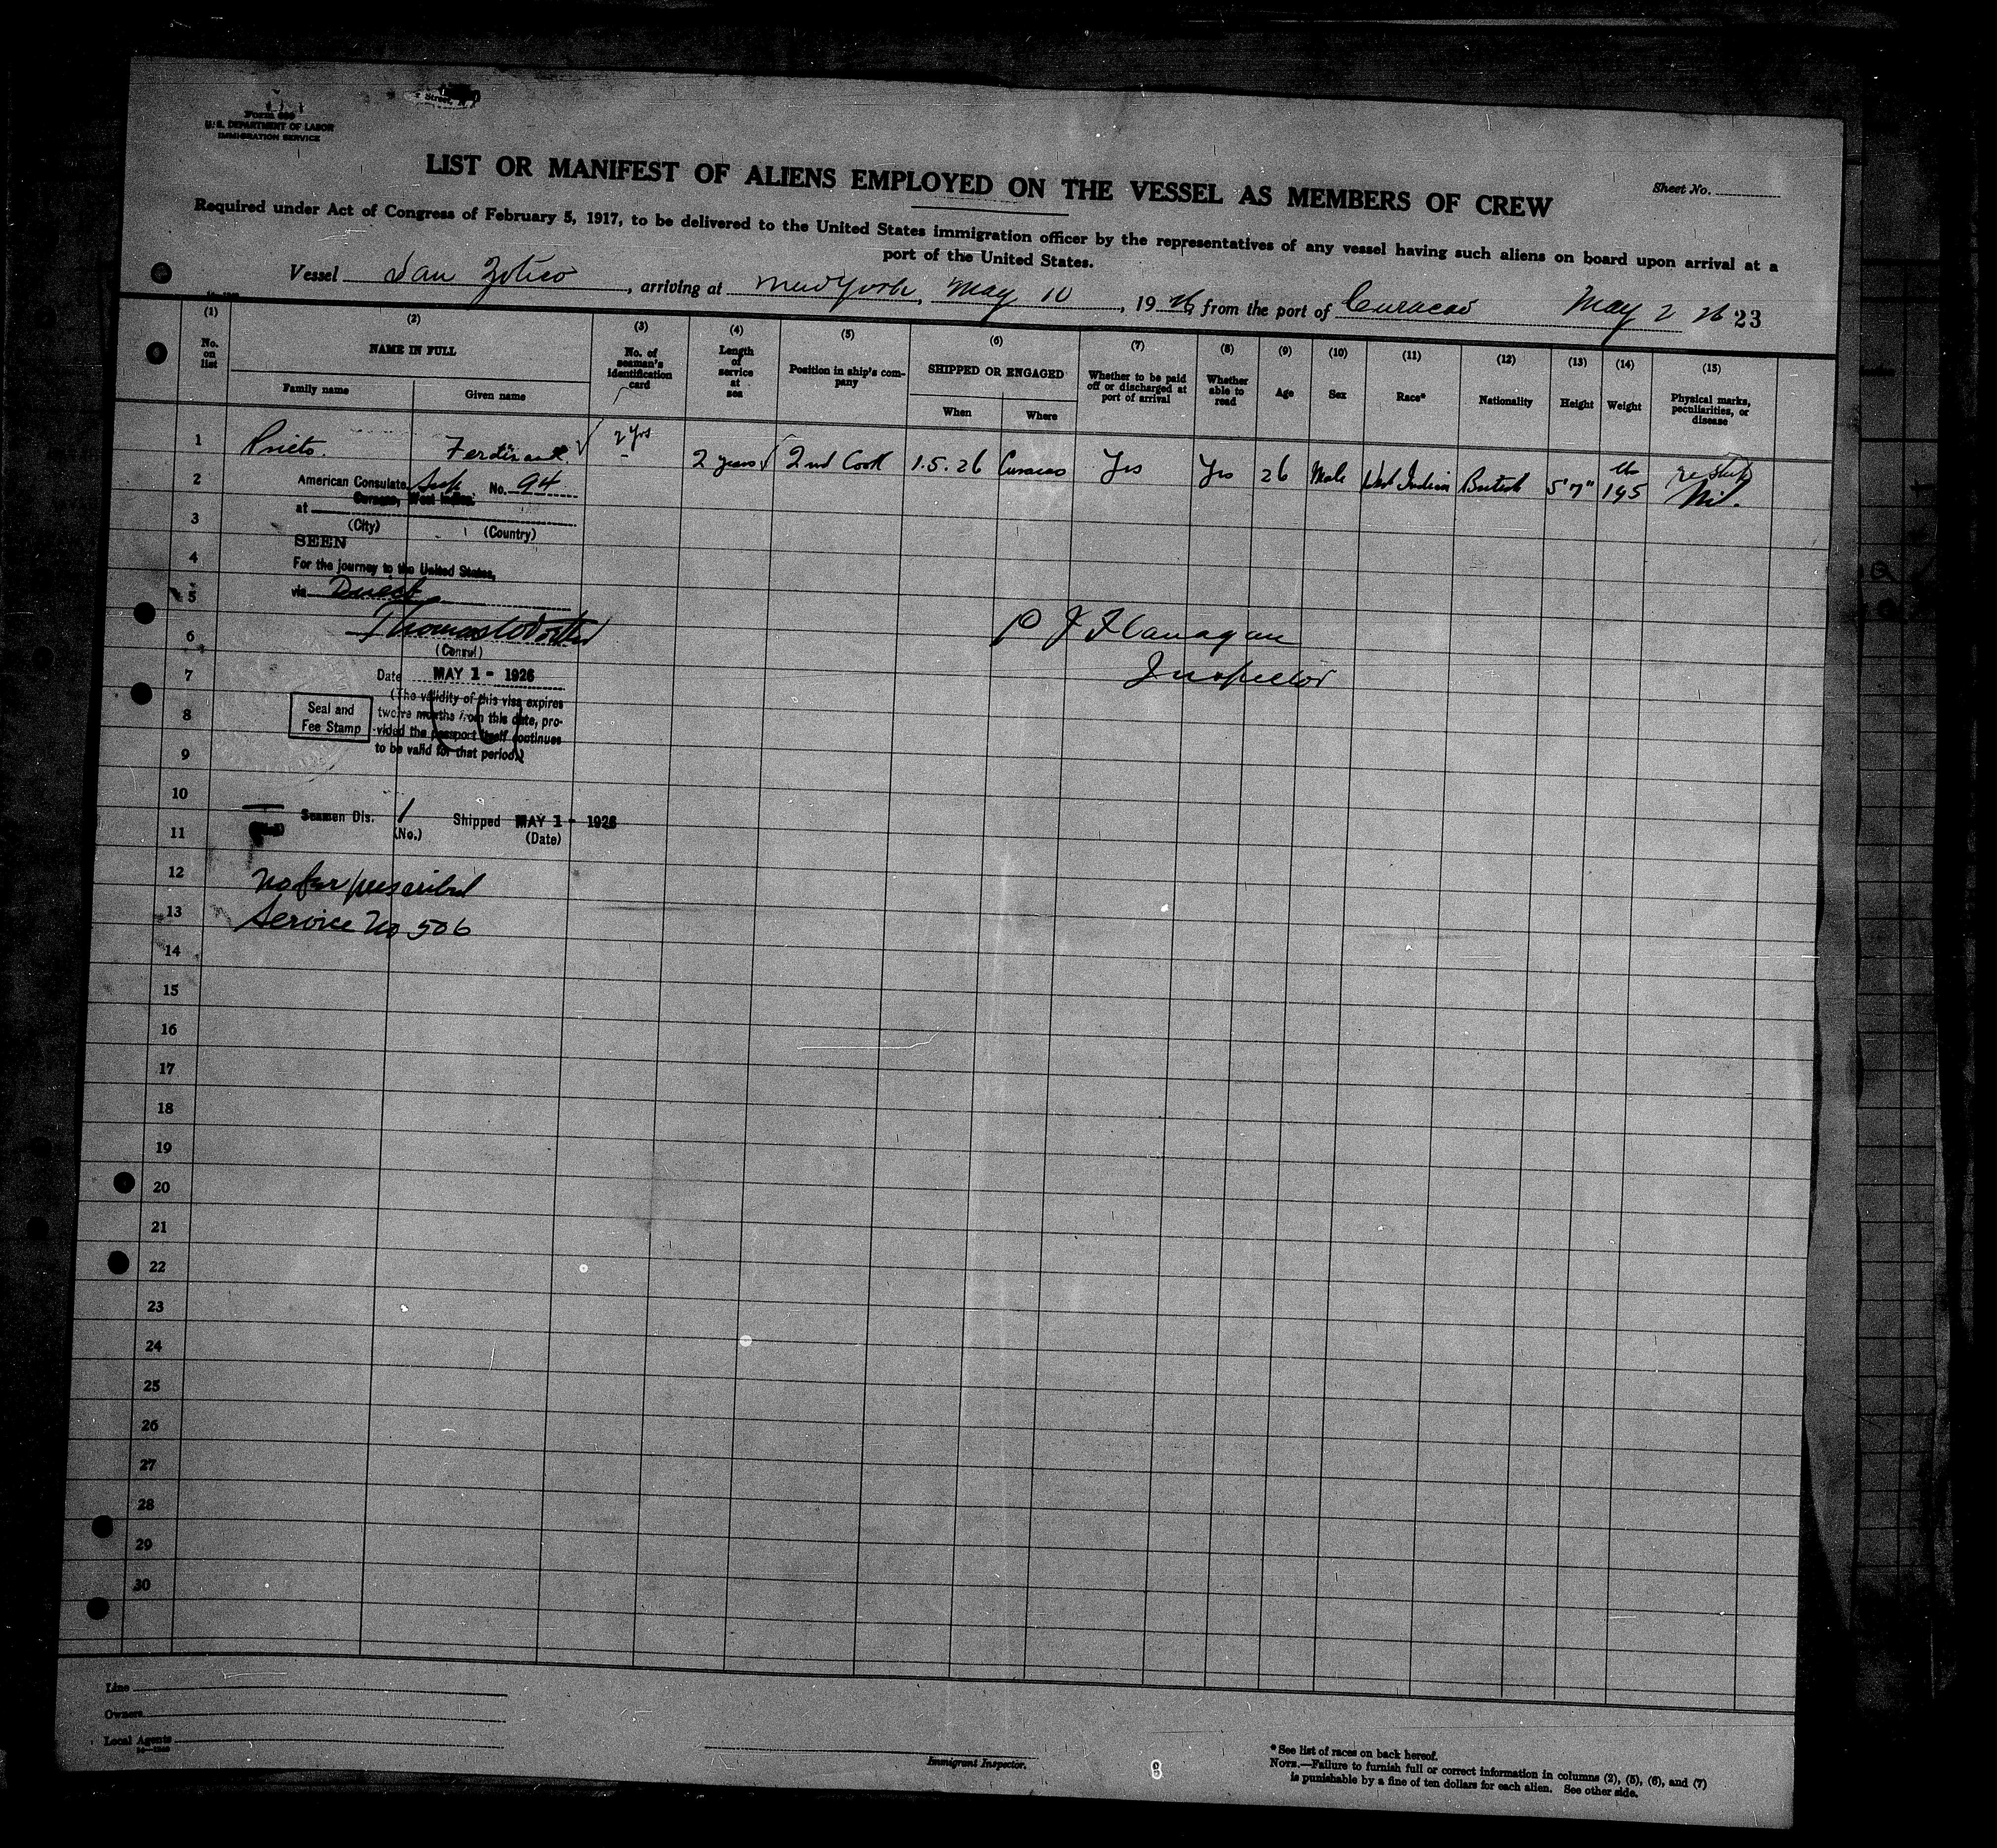 Form 689
U. S. DEPARTMENT OF LABOR
IMMIGRATION SERVICE
Street,
LIST OR MANIFEST OF ALIENS EMPLOYED ON THE VESSEL AS MEMBERS OF CREW
Sheet No.
Required under Act of Congress of February 5, 1917, to be delivered to the United States immigration officer by the representatives of any vessel having such aliens on board upon arrival at a
port of the United States.
Vessel San Zotico, arriving at New York, May 10, 1926, from the port of Curacao May 2 26 23
(1) (2) (3) (4) (5) (6) (7) (8) (9) (10) (11) (12) (13) (14) (15)
No. on list
NAME IN FULL
Family name Given name
No. of seaman's identification card
Length of service at sea
Position in ship's company
SHIPPED OR ENGAGED
When Where
Whether to be paid off or discharged at port of arrival
Whether able to read
Age
Sex
Race*
Nationality
Height
Weight
Physical marks, peculiarities, or disease
1 Prieto. Ferdinand 2 yrs 2 years 2nd Cook 1.5.26 Curacao Yes Yes 26 Male West Indian British 5'7" 145 Nil.
2 American Consulate No. 94
Curacao, West Indies
3 at
(City) (Country)
SEEN
4 For the journey to the United States,
5 via Direct
6 P J Flanagan
(Consul)
7 Date MAY 1 - 1926
Inspector
(The validity of this visa expires
8 Seal and Fee Stamp
twelve months from this date, pro-
vided the passport itself continues
9 to be valid for that period.)
10
Seamen Dis. 1 Shipped MAY 1 - 1926
11 (No.) (Date)
12 No fee prescribed
13 Service No 506
14
15
16
17
18
19
20
21
22
23
24
25
26
27
28
29
30
Line
Owners
Local Agents
Immigrant Inspector.
8
* See list of races on back hereof.
NOTE.—Failure to furnish full or correct information in columns (2), (5), (6), and (7)
is punishable by a fine of ten dollars for each alien. See other side.